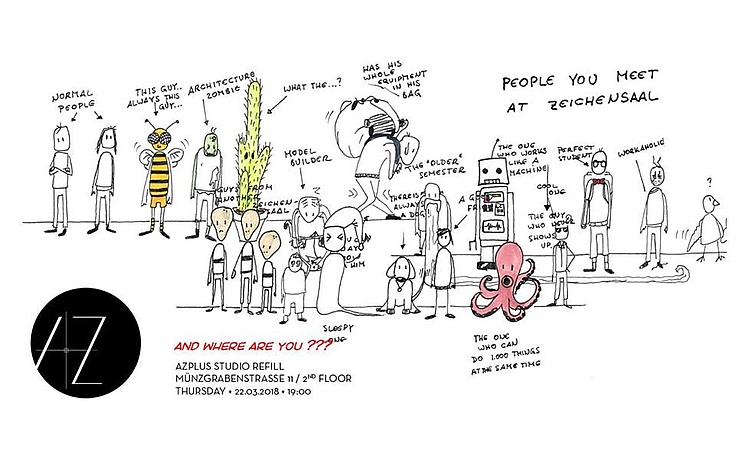 PEOPLE YOU MEET
AT ZEICHENSAAL
NORMAL
PEOPLE
THIS GUY..
ALWAYS THIS
GUY...
ARCHITECTURE
ZOMBIE
WHAT THE...?
HAS HIS
WHOLE
EQUIPMENT
IN HIS
BAG
MODEL
BUILDER
THE "OLDER"
SEMESTER
THE ONE
WHO WORKS
LIKE A
MACHINE
PERFECT
STUDENT
WORKAHOLIC
?
GUYS FROM
ANOTHER
ZEICHEN-
SAAL
THERE IS
ALWAYS
A DOG!
COOL
ONE
THE GUY
WHO NEVER
SHOWS
UP
HIM
SLEEPY
THE ONE
WHO CAN
DO 1.000 THINGS
AT THE SAME TIME
AZ
AND WHERE ARE YOU ???
AZPLUS STUDIO REFILL
MÜNZGRABENSTRASSE 11 / 2ND FLOOR
THURSDAY + 22.03.2018 + 19:00